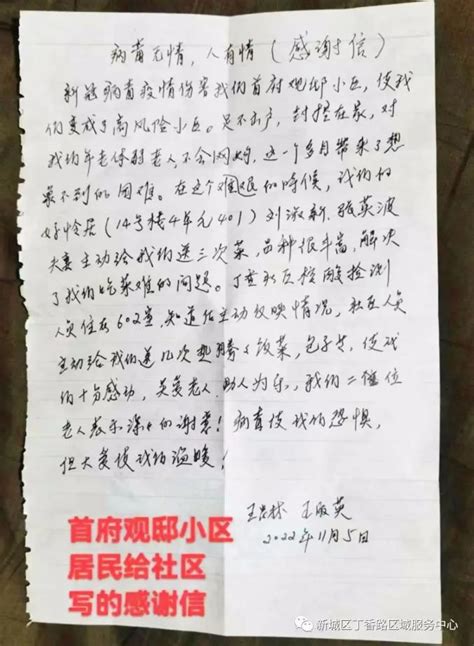 病毒无情，人有情（感谢信）
新冠病毒疫情伤害我们首府观邸小区，使我
们变成了高风险小区。足不出户，封控在家，对
我们年老体弱老人，不会网购，这一个多月带来了想
象不到的困难。在这个困难的时候，我们的
好怜居（14号楼4单元401）刘淑新、张英波
夫妻主动给我们送三次菜，品种很丰富，解决
了我们吃菜难的问题。丁香社区核酸检测
人员住在602室，知道后主动反映情况，社区人员
主动给我们送几次热腾腾饭菜，包子等，使我
们十分感动，关爱老人，助人为乐，我们二位
老人表示深深的谢意！病毒使我们恐惧，
但大爱使我们温暖！
王 林 王 英
2022年11月5日
首府观邸小区
居民给社区
写的感谢信
新城区丁香路区域服务中心